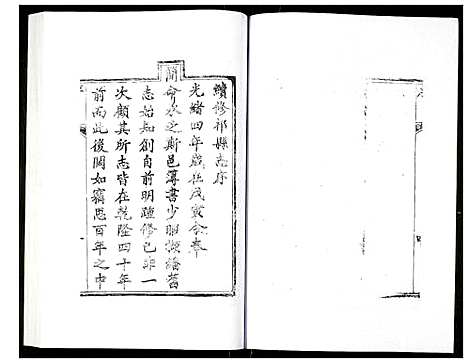 續修祁縣志序
光緒四年歲在戊寅余奉
簡
命承乏斯邑簿書少暇擷繙舊
志始知創自前明踵修已非一
次顧其所志皆在乾隆四十年
前而此後闕如竊思百年之中